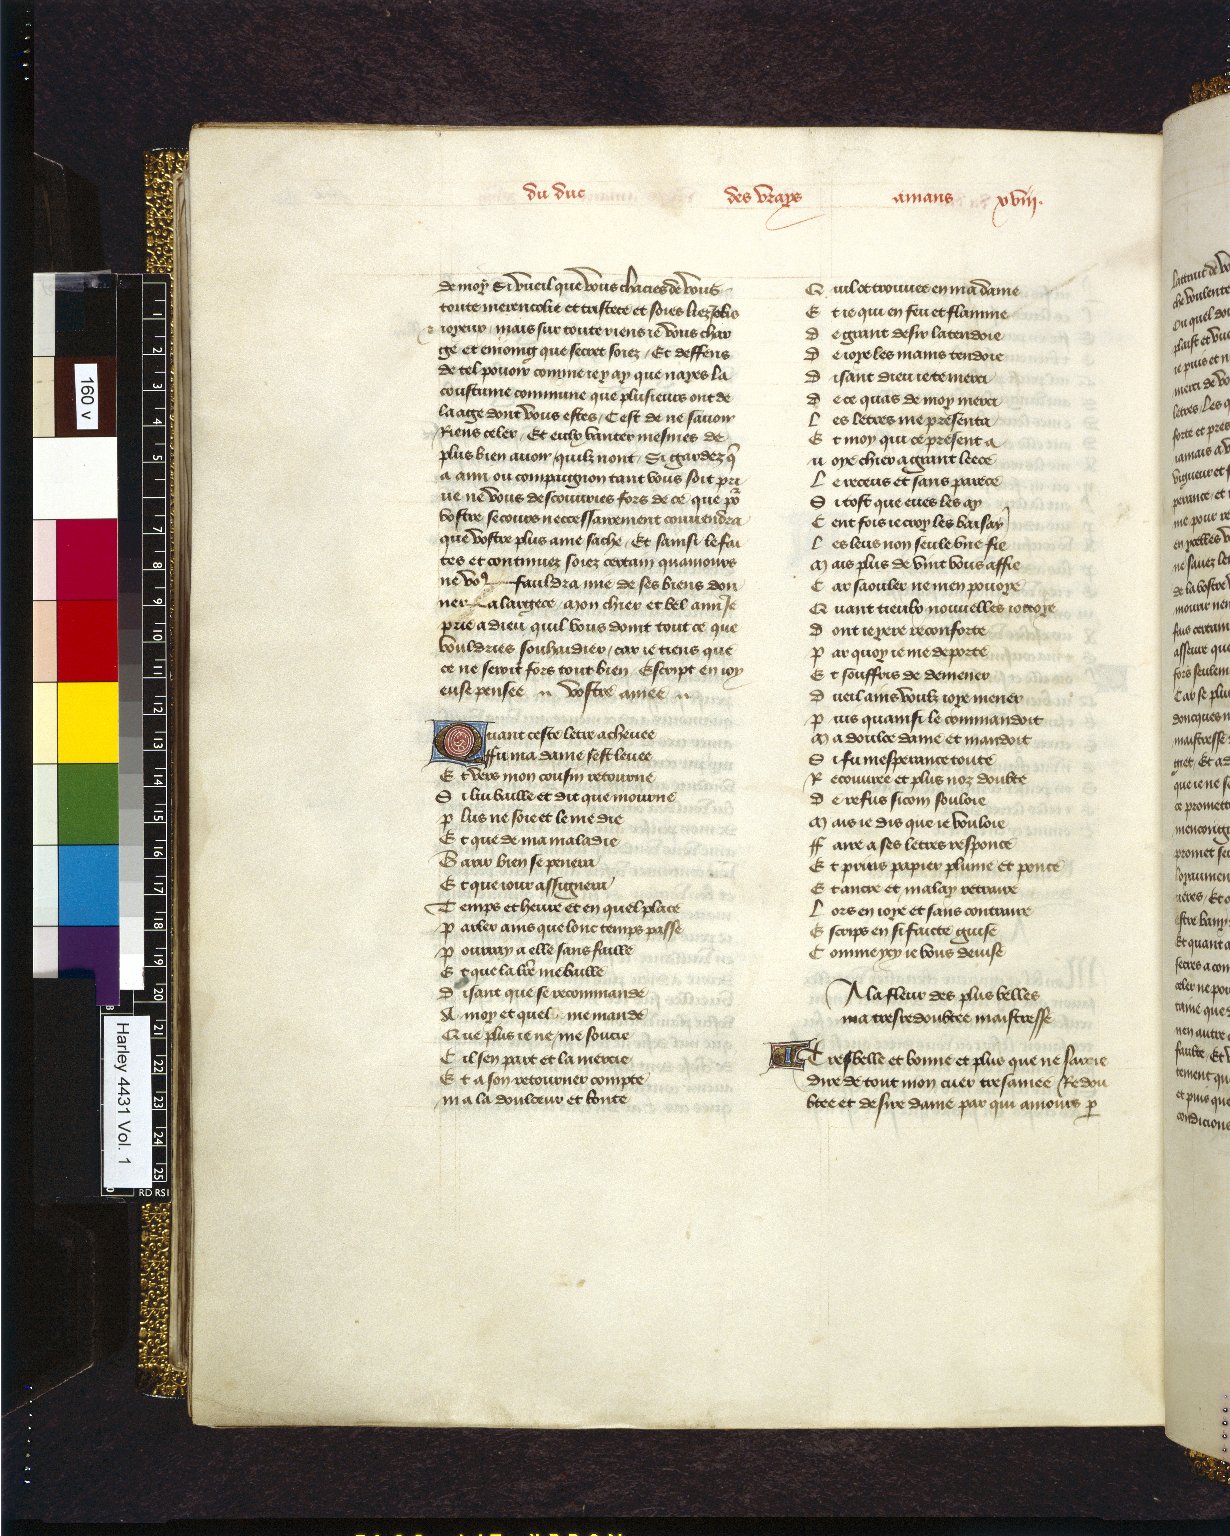 du duc des vrays amans xviii.
de moy Si vueil que vous chacies de vous
toute merencolie et tristece et soies liez jolis
et ioyeux / mais sur toute riens ie vous char
ge et enioing que secret soiez / Et deffens
de tel pouoir comme iey ay que nayes la
coustume commune que plusieurs ont de
laage dont vous estes / Cest de ne sauoir
Riens celer / Et eulx vanter mesmes de
plus bien auoir quilz nont / Si gardez q̃
a ami ou compaignon tant vous soit pri
ue ne vous descouuries fors de ce que po᷑
vostre secours neccessairement conuendra
que vostre plus ame sache / Et sainsi le fai
tes et continuez soiez certain quamours
ne voꝰ fauldra mie de ses biens don
ner a largece / Mon chier et bel ami Je
prie a dieu quil vous doint tout ce que
vouldries souhaidier / car ie tiens que
ce ne seroit fors tout bien / Escript en ioy
euse pensee .. vostre amee ..
Quant ceste letre acheuee
ffu ma dame sest leuee
Et vers mon cousin retourne
Si lui baille et dit que mourne
plus ne soie et le me die
Et que de ma maladie
Garir bien se penera
Et que iour assignera
Temps et heure et en quel place
parler ains que lonc temps passe
pourray a elle sans faille
Et que la lr̃e me baille
Disant que se recommande
A moy et quel me mande
Que plus ie ne me soucie
Cil sen part et la mercie
Et a son retourner compte
ma la doulceur et bonte
Quil ot trouuee en ma dame
Et ie qui en feu et flamme
de grant desir latendoie
De ioye les mains tendoie
Disant dieu ie te merci
De ce quas de moy merci
Les letres me presenta
Et moy qui ce present a
Moye chier a grant leece
Le receus et sans parece
Si tost que eues les ay
Cent fois ie croy les baisay
Les leus non seule vne fie
Mais plus de vint vous affie
Car saouler ne men pouoye
Quant tieulx nouuelles iottoye
Dont ieyere reconforte
par quoy ie me deporte
Et souffris de demener
Dueil ains voulz ioye mener
puis quainsi le commandoit
Ma doulce dame et mandoit
Si fu mesperance toute
Recouuree et plus noz doubte
De refus sicom souloie
Mais ie dis que ie vouloie
ffaire a ses letres response
Et prins papier plume et ponce
Et ancre et malay retraire
Lors en ioye et sans contraire
Escrips en si faicte guise
Comme yey ie vous deuise
A la fleur des plus belles
ma tresredoubtee maistresse
Tresbelle et bonne et plus que ne sarrie
dire de tout mon cuer tresamee Redou
btee et desiree dame par qui amours p̱
160 v
Harley 4431 Vol. 1